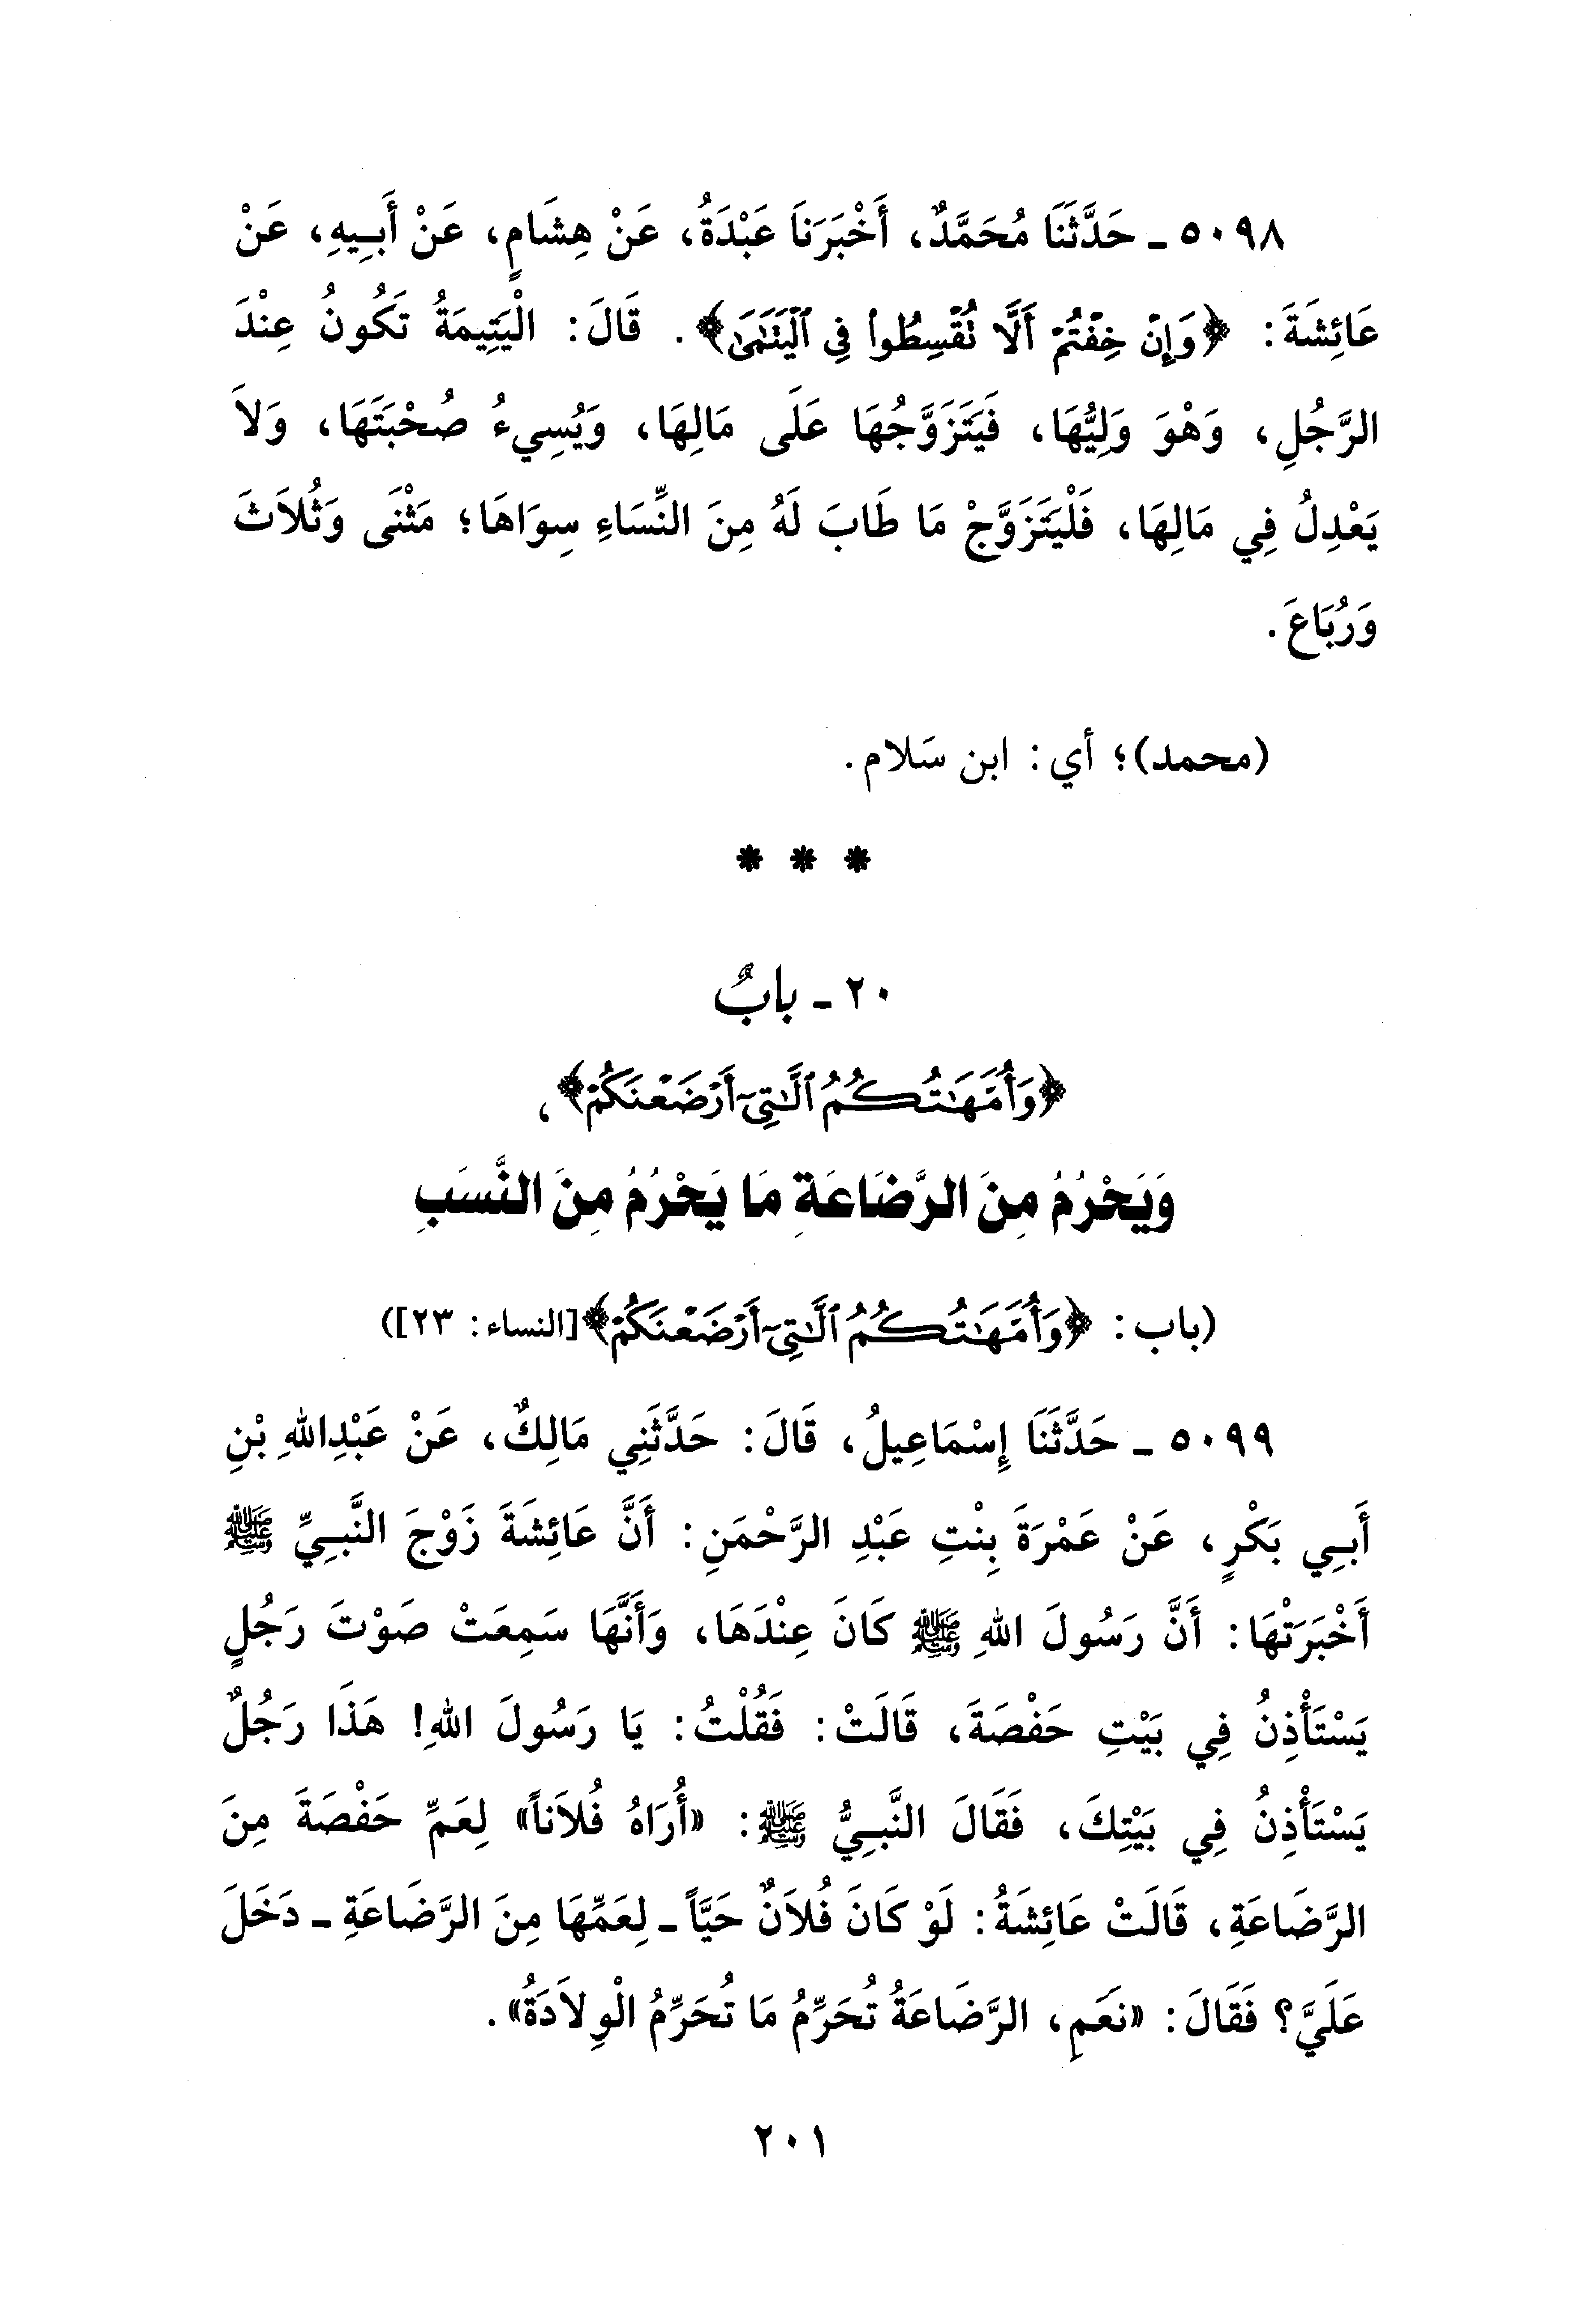 ٥٠٩٨ ـ حَدَّثَنَا مُحَمَّدٌ، أَخْبَرَنَا عَبْدَةُ، عَنْ هِشَامٍ، عَنْ أَبِيهِ، عَنْ
عَائِشَةَ: ﴿وَإِنْ خِفْتُمْ أَلَّا تُقْسِطُوا۟ فِي ٱلْيَتَٰمَىٰ﴾. قَالَ: الْيَتِيمَةُ تَكُونُ عِنْدَ
الرَّجُلِ، وَهْوَ وَلِيُّهَا، فَيَتَزَوَّجُهَا عَلَى مَالِهَا، وَيُسِيءُ صُحْبَتَهَا، وَلاَ
يَعْدِلُ فِي مَالِهَا، فَلْيَتَزَوَّجْ مَا طَابَ لَهُ مِنَ النِّسَاءِ سِوَاهَا؛ مَثْنَى وَثُلاَثَ
وَرُبَاعَ.
(محمد)؛ أي: ابن سَلام.
* * *
٢٠ ـ بابٌ
﴿وَأُمَّهَٰتُكُمُ ٱلَّٰتِىٓ أَرْضَعْنَكُمْ﴾،
وَيَحْرُمُ مِنَ الرَّضَاعَةِ مَا يَحْرُمُ مِنَ النَّسَبِ
(باب: ﴿وَأُمَّهَٰتُكُمُ ٱلَّٰتِىٓ أَرْضَعْنَكُمْ﴾[النساء: ٢٣])
٥٠٩٩ ـ حَدَّثَنَا إِسْمَاعِيلُ، قَالَ: حَدَّثَنِي مَالِكٌ، عَنْ عَبْدِاللهِ بْنِ
أَبِي بَكْرٍ، عَنْ عَمْرَةَ بِنْتِ عَبْدِ الرَّحْمَنِ: أَنَّ عَائِشَةَ زَوْجَ النَّبِيِّ ﷺ
أَخْبَرَتْهَا: أَنَّ رَسُولَ اللهِ ﷺ كَانَ عِنْدَهَا، وَأَنَّهَا سَمِعَتْ صَوْتَ رَجُلٍ
يَسْتَأْذِنُ فِي بَيْتِ حَفْصَةَ، قَالَتْ: فَقُلْتُ: يَا رَسُولَ اللهِ! هَذَا رَجُلٌ
يَسْتَأْذِنُ فِي بَيْتِكَ، فَقَالَ النَّبِيُّ ﷺ: «أُرَاهُ فُلاَناً» لِعَمِّ حَفْصَةَ مِنَ
الرَّضَاعَةِ، قَالَتْ عَائِشَةُ: لَوْ كَانَ فُلاَنٌ حَيَّاً ـ لِعَمِّهَا مِنَ الرَّضَاعَةِ ـ دَخَلَ
عَلَيَّ؟ فَقَالَ: «نَعَمِ، الرَّضَاعَةُ تُحَرِّمُ مَا تُحَرِّمُ الْوِلاَدَةُ».
٢٠١